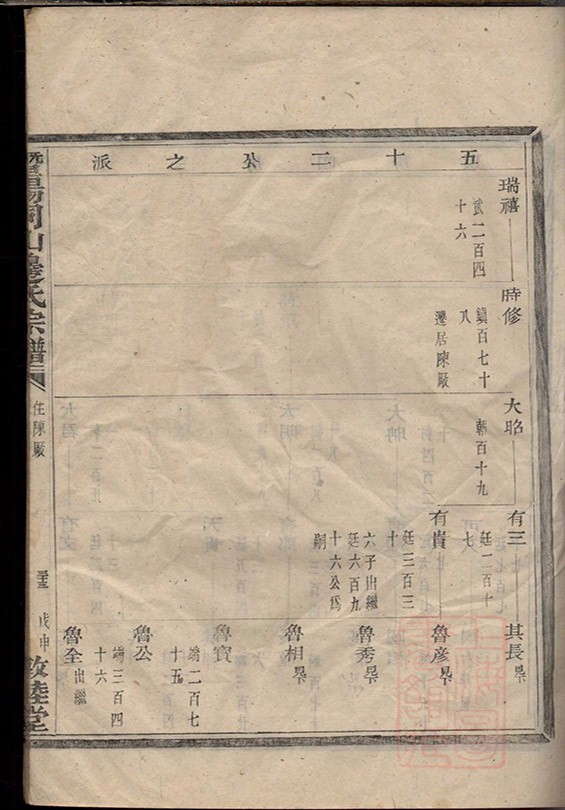 五十二公之派
瑞禧
武二百四
十六
時修
鎮百七十
八
遷居陳厰
大昭
朝百十九
有三
廷二百十
七
有貴
廷三百三
十
六子出繼
廷六百九
十六公爲
嗣
其長
魯彦
魯秀
魯相
魯寳
端二百七
十五
魯公
端三百四
十六
魯全出繼
山
氏宗譜
住陳厰
戊申
敦睦堂